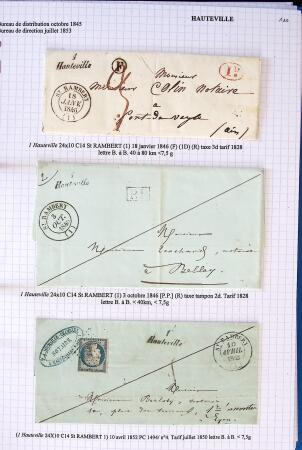 Bureau de distribution octobre 1845
HAUTEVILLE
Bureau de direction juillet 1853
1
Hauteville
F
1D
ST RAMBERT
18
JANV
1846
(1)
Monsieur
Monsieur Colin Notaire
à
Pont-de-Veyle
(ain)
1 Hauteville 24x10 C14 St RAMBERT (1) 18 janvier 1846 (F) (1D) (R) taxe 3d tarif 1828
lettre B. à B. 40 à 80 km <7,5 g
1
Hauteville
ST RAMBERT
3
OCT.
(1)
Monsieur
Monsieur notaire
à Belley
1 Hauteville 24x10 C14 St RAMBERT (1) 3 octobre 1846 [P.P.] (R) taxe tampon 2d. Tarif 1828
lettre B. à B. < 40km, < 7,5g
1
Hauteville
ST RAMBERT
10
AVRIL
1852
Monsieur
Monsieur
Lyon
(1 Hauteville 24X10 C14 St RAMBERT 1) 10 avril 1852 PC 1494/ n°4. Tarif juillet 1850 lettre B. à B. < 7,5g